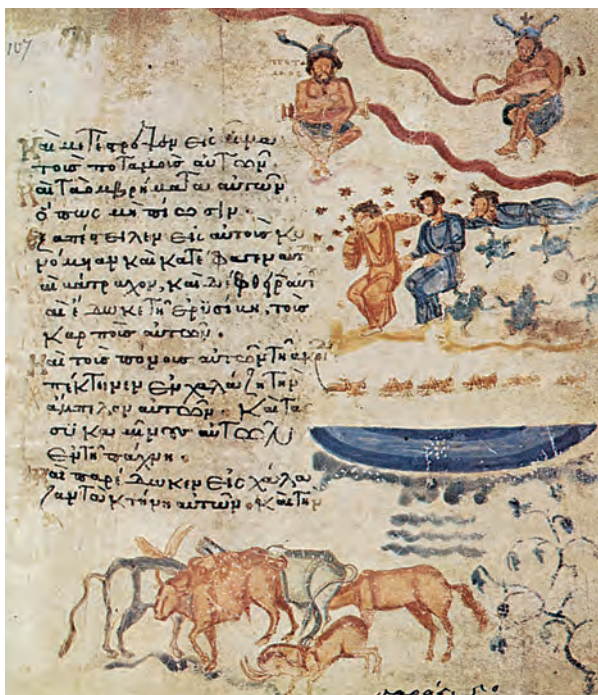 107
Καὶ μετέστρεψεν εἰς αἷμα
τοὺς ποταμοὺς αὐτῶν
καὶ τὰ ὀμβρήματα αὐτῶν
ὅπως μὴ πίωσιν.
Ἐξαπέστειλεν εἰς αὐτοὺς κυ
νόμυιαν καὶ κατέφαγεν αυτ
καὶ βάτραχον, καὶ διέφθειρ αυτ
καὶ ἔδωκε τῇ ἐρυσίβη, τοὺς
καρποὺς αὐτῶν.
Καὶ τοὺς πόνους αὐτῶν τῇ ἀκρι
πέκτεινεν ἐν χαλάζῃ τὴν
ἄμπελον αὐτῶν. Καὶ τὰς
συκαμίνους αὐτῶν
ἐν τῇ πάχνῃ.
Καὶ παρέδωκεν εἰς χάλα
ζαν τὰ κτήνη αὐτῶν. Καὶ τὴν